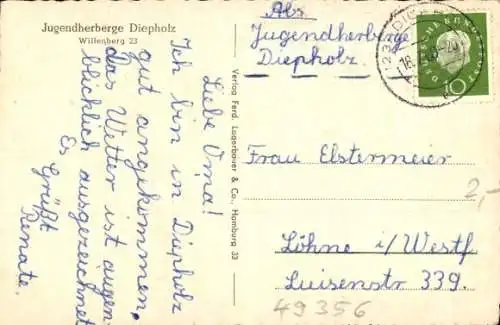 Jugendherberge Diepholz
Willenberg 23
Liebe Oma!
Ich bin in Diepholz
gut angekommen,
das Wetter ist augen-
blicklich ausgezeichnet
Es
Grüßt
Renate.
Verlag Ferd. Lagerbauer & Co., Hamburg 33
Abs.
Jugendherberge
Diepholz.
DEUTSCHE BUNDESPOST
10
Frau Elstermeier
2,-
Löhne i/Westf.
Luisenstr 339.
49356